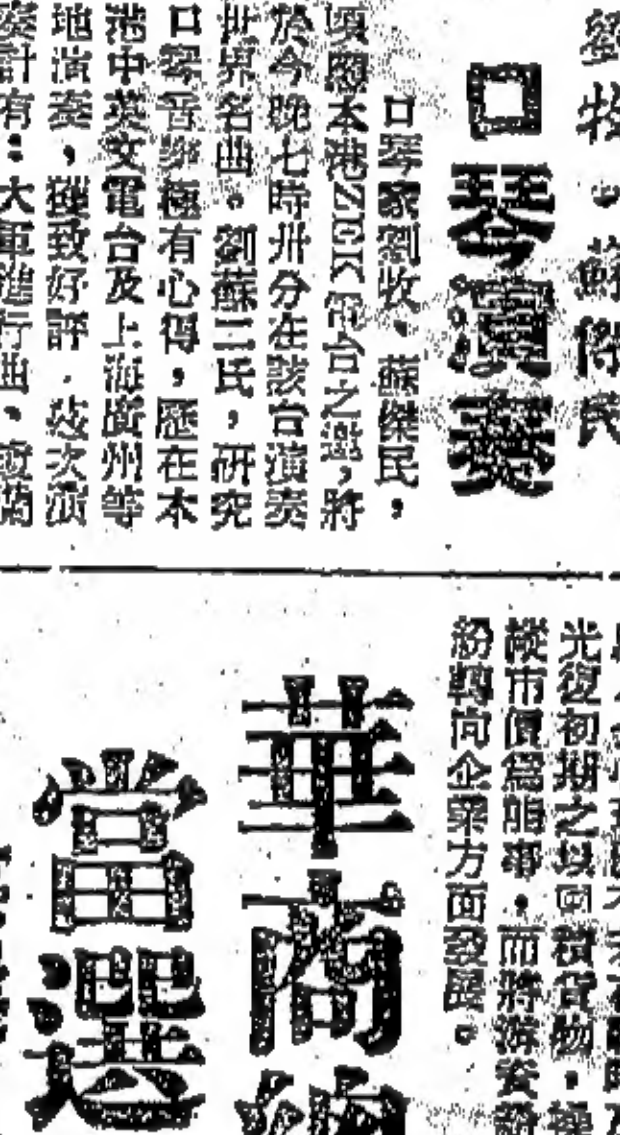 劉牧·蘇傑民
口琴演奏
口琴家劉牧、蘇傑民，
頃應本港ZEK電台之邀，將
於今晚七時卅分在該台演奏
世界名曲。劉蘇二氏，研究
口琴音樂極有心得，歷在本
港中英文電台及上海廣州等
地演奏，極致好評．茲次演
奏計有：大軍進行曲、
光復初期之以囤積貨物，操
縱市價為能事，而將游資
紛轉向企業方面發展。
華商總
當選